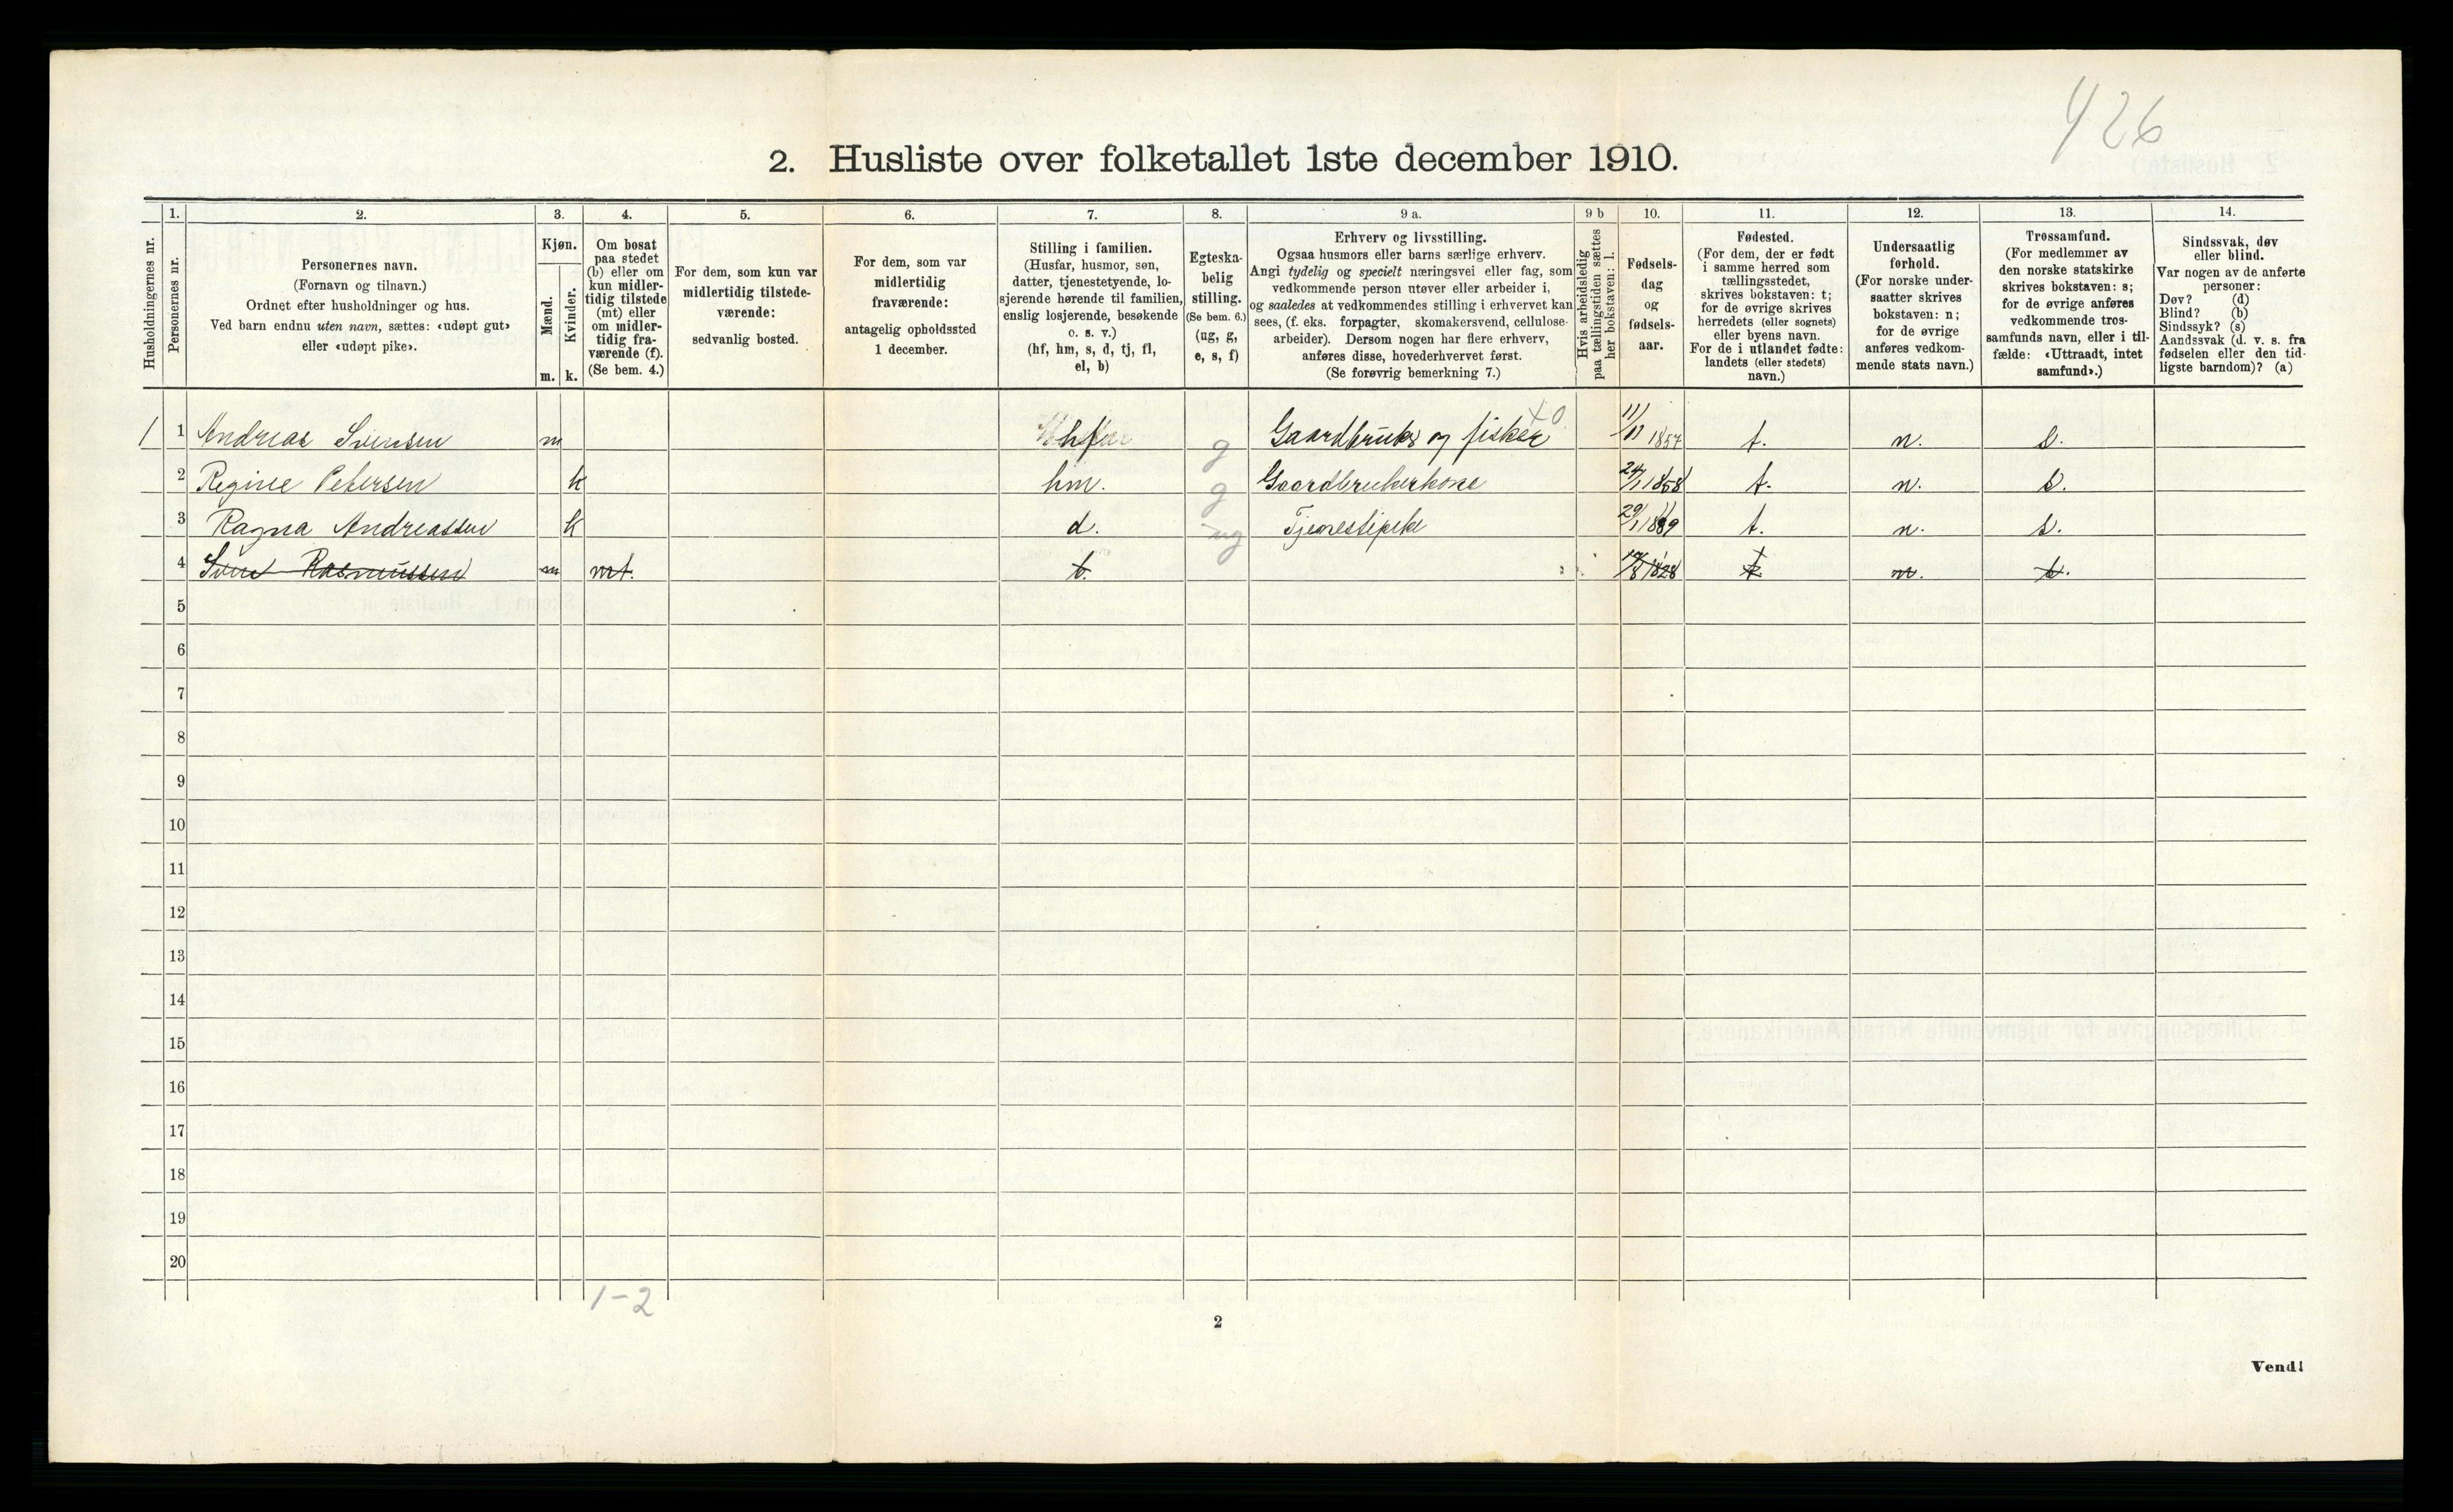 426
2. Husliste over folketallet 1ste december 1910.
1. 2. 3. 4. 5. 6. 7. 8. 9 a. 9 b 10. 11. 12. 13. 14.
Husholdningernes nr.
Personernes nr.
Personernes navn.
(Fornavn og tilnavn.)
Ordnet efter husholdninger og hus.
Ved barn endnu uten navn, sættes: «udøpt gut»
eller «udøpt pike».
Kjøn.
Mænd.
Kvinder.
m. k.
Om bosat
paa stedet
(b) eller om
kun midler-
tidig tilstede
(mt) eller
om midler-
tidig fra-
værende (f).
(Se bem. 4.)
For dem, som kun var
midlertidig tilstede-
værende:
sedvanlig bosted.
For dem, som var
midlertidig
fraværende:
antagelig opholdssted
1 december.
Stilling i familien.
(Husfar, husmor, søn,
datter, tjenestetyende, lo-
sjerende hørende til familien,
enslig losjerende, besøkende
o. s. v.)
(hf, hm, s, d, tj, fl,
el, b)
Egteska-
belig
stilling.
(Se bem. 6.)
(ug, g,
e, s, f)
Erhverv og livsstilling.
Ogsaa husmors eller barns særlige erhverv.
Angi tydelig og specielt næringsvei eller fag, som
vedkommende person utøver eller arbeider i,
og saaledes at vedkommendes stilling i erhvervet kan
sees, (f. eks. forpagter, skomakersvend, cellulose-
arbeider). Dersom nogen har flere erhverv,
anføres disse, hovederhvervet først.
(Se forøvrig bemerkning 7.)
Hvis arbeidsledig
paa tællingstiden sættes
her bokstaven: l.
Fødsels-
dag
og
fødsels-
aar.
Fødested.
(For dem, der er født
i samme herred som
tællingsstedet,
skrives bokstaven: t;
for de øvrige skrives
herredets (eller sognets)
eller byens navn.
For de i utlandet fødte:
landets (eller stedets)
navn.)
Undersaatlig
forhold.
(For norske under-
saatter skrives
bokstaven: n;
for de øvrige
anføres vedkom-
mende stats navn.)
Trossamfund.
(For medlemmer av
den norske statskirke
skrives bokstaven: s;
for de øvrige anføres
vedkommende tros-
samfunds navn, eller i til-
fælde: «Uttraadt, intet
samfund».)
Sindssvak, døv
eller blind.
Var nogen av de anførte
personer:
Døv? (d)
Blind? (b)
Sindssyk? (s)
Aandssvak (d. v. s. fra
fødselen eller den tid-
ligste barndom)? (a)
1 1 Andreas Svensen m g Gaardbruks og fisker 1857 t. n. s.
2 Regine Petersen k hm. g Gaardbrukerkone 24/1 1858 t. n. s.
3 Ragna Andreassen k d. ug Tjenestipike 29/1 1889 t. n. s.
4 Sven Rasmussen m mt. b. 1828 t n. s.
5
6
7
8
9
10
11
12
13
14
15
16
17
18
19
20
1-2
2
Vend!